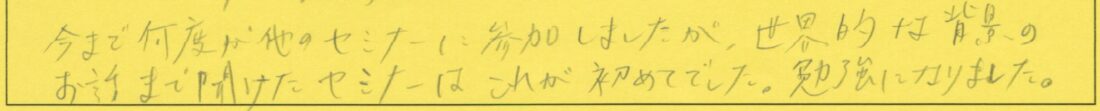 今まで何度か他のセミナーに参加しましたが、世界的な背景の
お話まで聞けたセミナーはこれが初めてでした。勉強になりました。